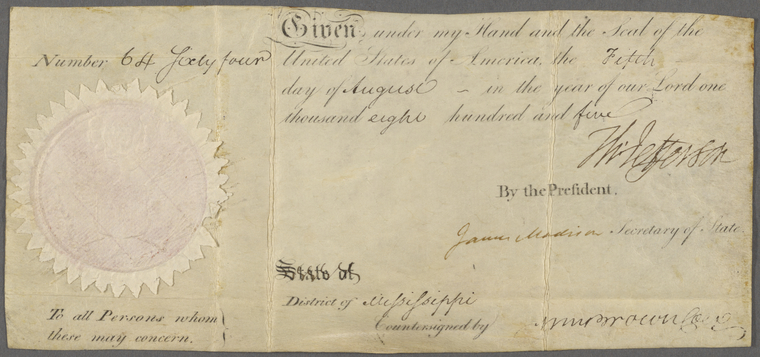 Given under my Hand and the Seal of the
Number 64 Sixty four
United States of America, the Fifth
day of August – in the year of our Lord one
thousand eight hundred and five
Th: Jefferson
By the Preſident.
James Madison Secretary of State.
State of
District of Mississippi
Countersigned by Wm Brown
To all Persons whom
these may concern.